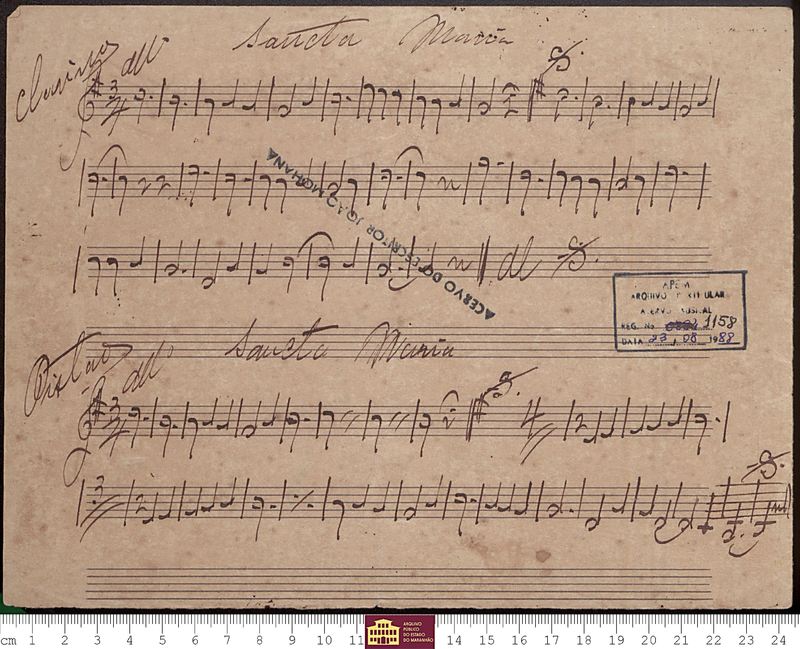 Sancta Maria
Clarins
3/4
ACERVO DO ESCRITOR JOÃO MOHANA
APEM
ARQUIVO PARTICULAR
ACERVO MUSICAL
REG. Nº 1158
DATA 23, 08 1988
Sancta Maria
Pistao
3/4
cm 1 2 3 4 5 6 7 8 9 10 11 14 15 16 17 18 19 20 21 22 23 24
ARQUIVO
PÚBLICO
DO ESTADO
DO MARANHÃO